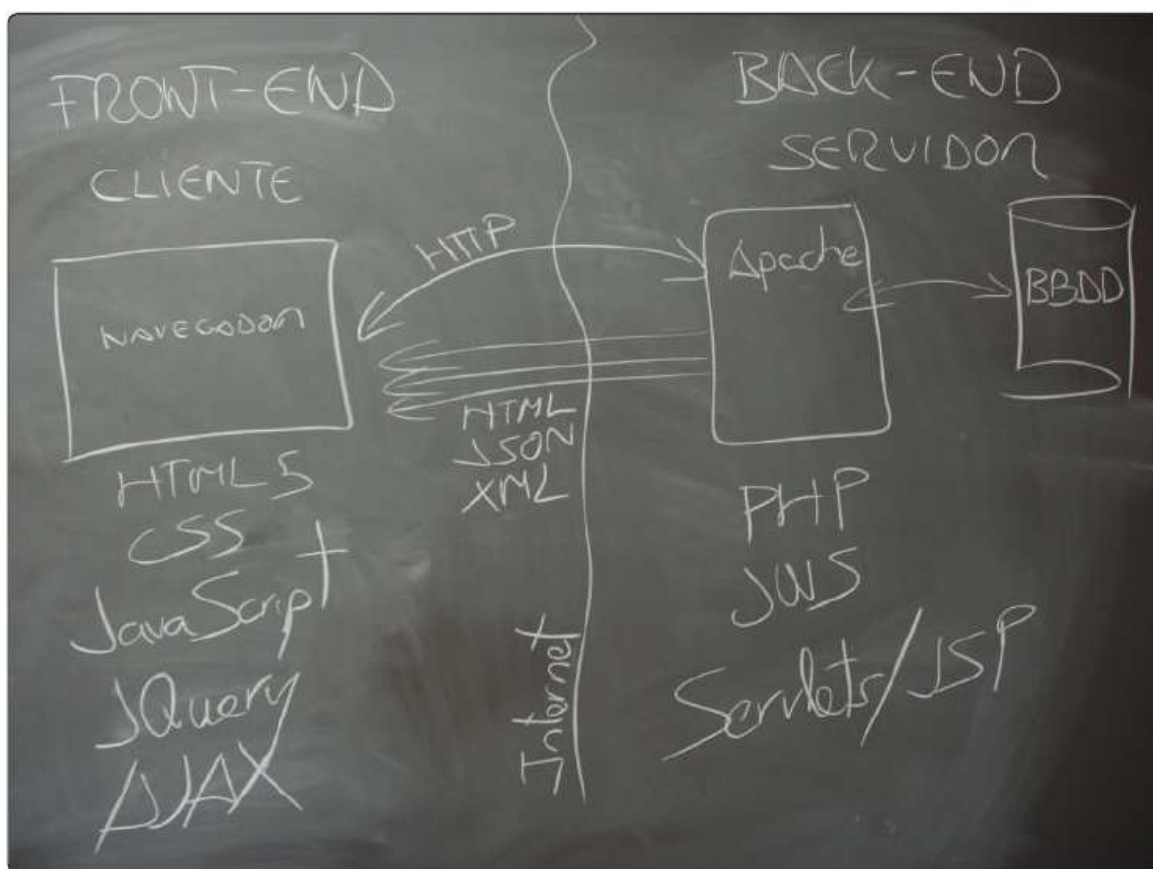 FRONT-END
CLIENTE
NAVEGADOR
HTML5
CSS
JavaScript
JQuery
AJAX
HTTP
HTML
JSON
XML
Internet
BACK-END
SERVIDOR
Apache
BBDD
PHP
JWS
Servlets/JSP